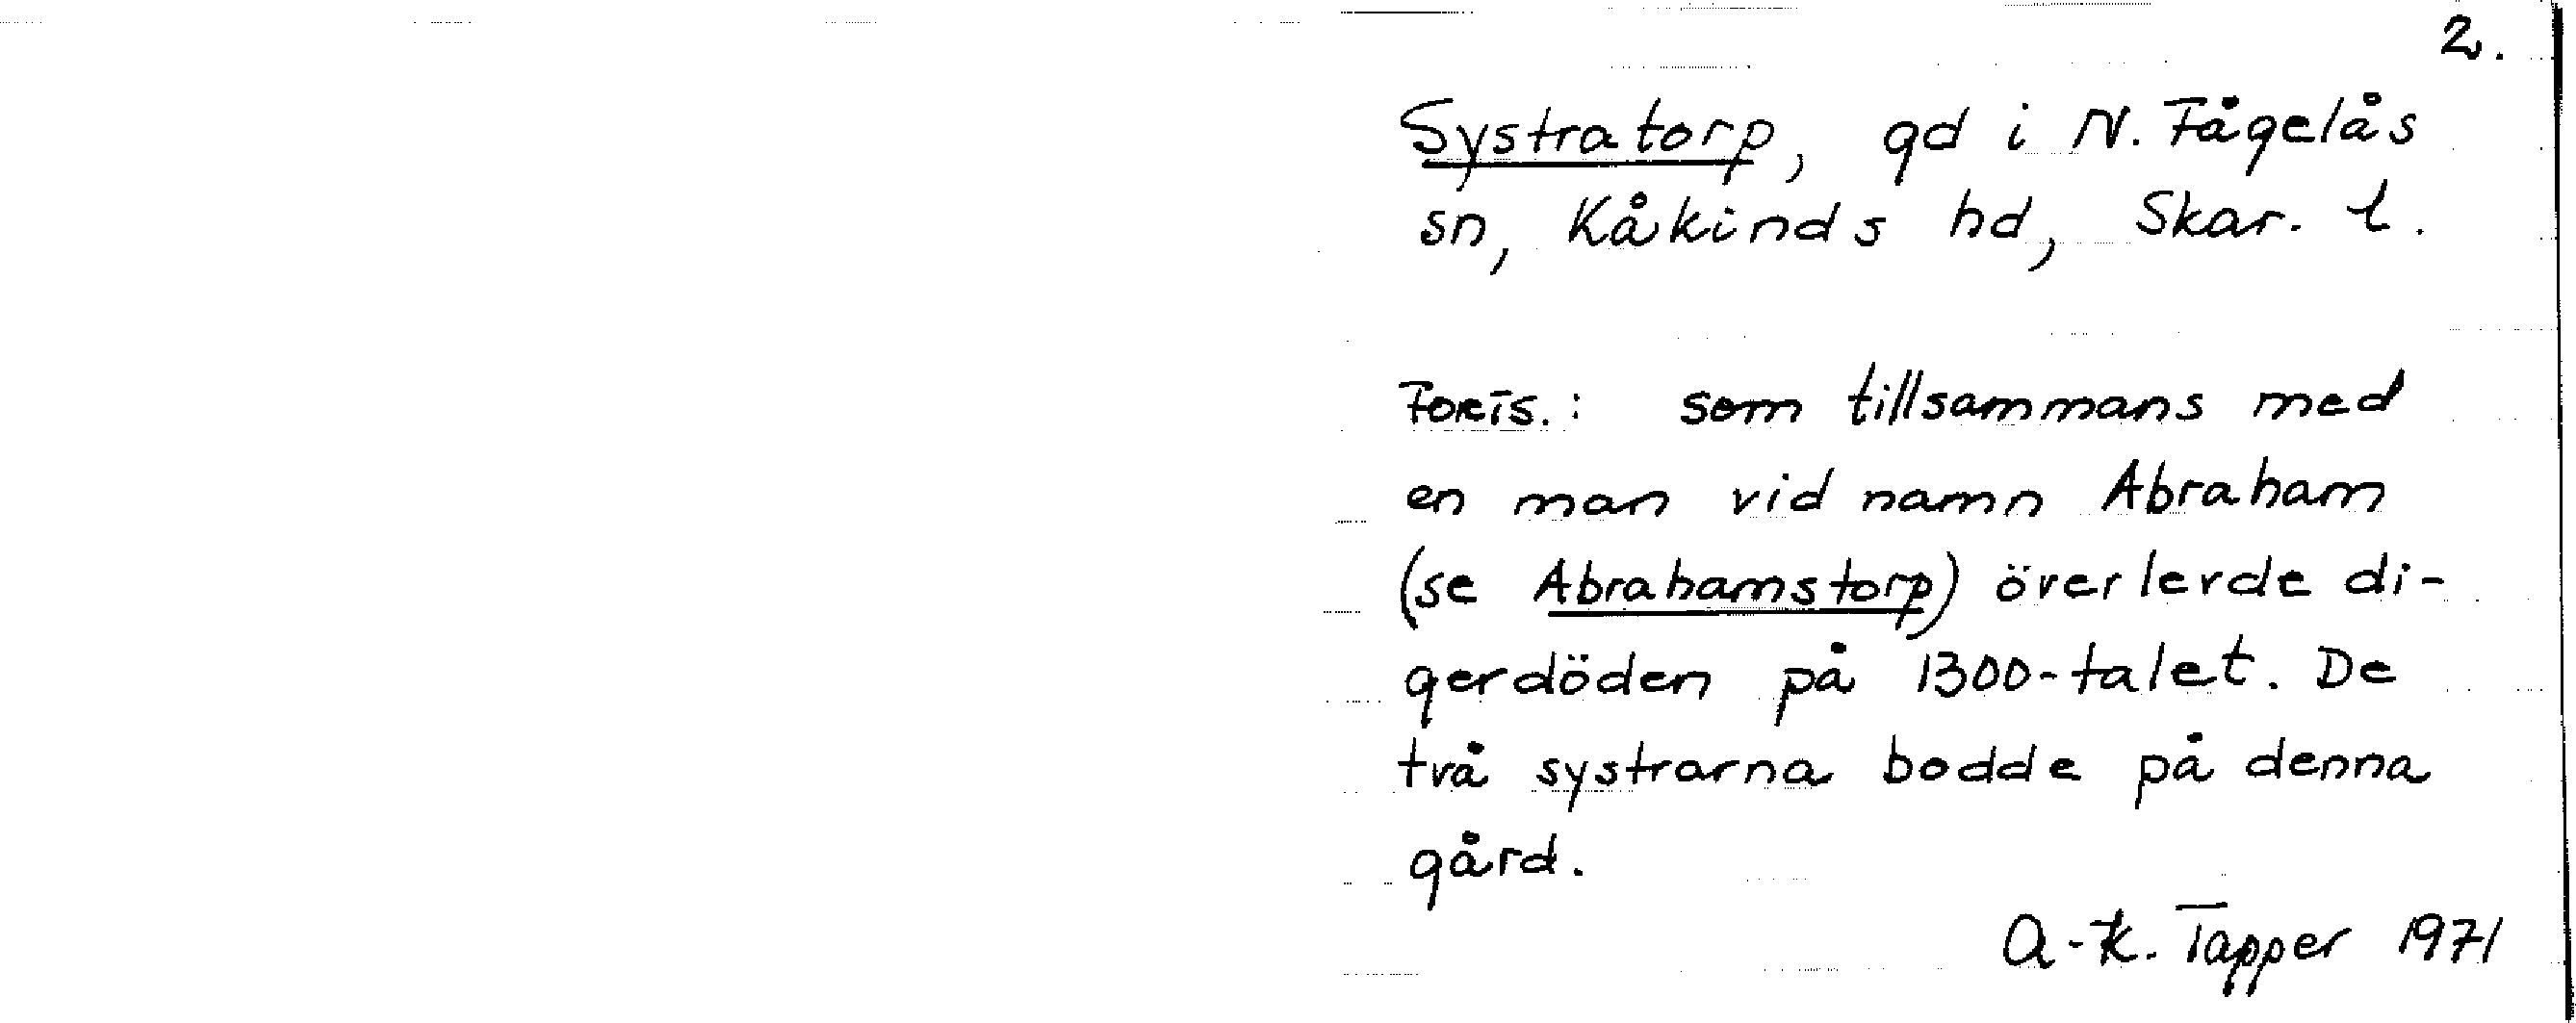 2.
Systratorp, gd i N. Fågelås
sn, Kåkinds hd, Skar. l.
Forts.: som tillsammans med
en man vid namn Abraham
(se Abrahamstorp) överlevde di-
gerdöden på 1300-talet. De
två systrarna bodde på denna
gård.
A-K. Tapper 1971